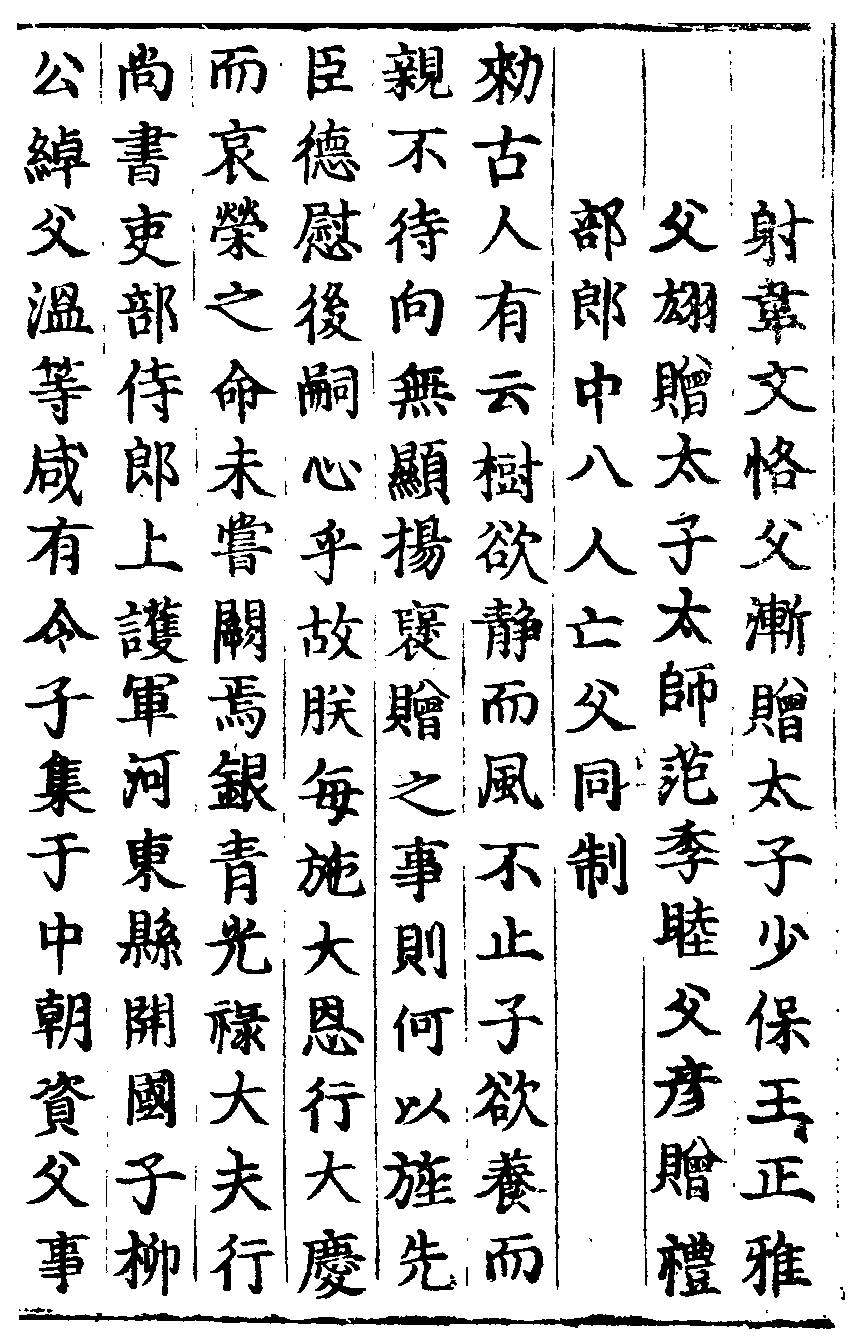 射韋文恪父漸贈太子少保王正雅
父翃贈太子太師范季睦父彥贈禮
部郎中八人亡父同制
勑古人有云樹欲静而風不止子欲養而
親不待向無顯揚襃贈之事則何以旌先
臣德慰後嗣心乎故朕每施大恩行大慶
而哀榮之命未嘗闕焉銀青光祿大夫行
尚書吏部侍郎上護軍河東縣開國子柳
公綽父溫等咸有令子集于中朝資父事